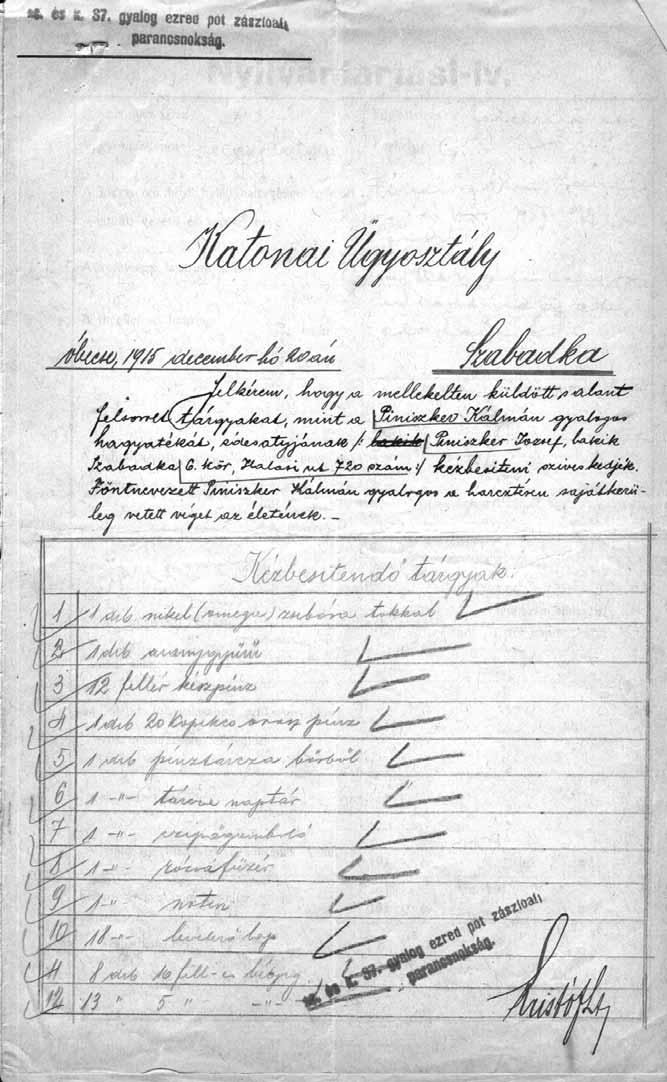 cs. és k. 37. gyalog ezred pót zászlóalj
parancsnokság.
Nyilvántartási-ív.
Katonai Ügyosztály
Óbecse, 1915 december hó 20án
Szabadka
Felkérem, hogy a mellékelten küldött s alant
felsorolt tárgyakat, mint a Piniszker Kálmán gyalogos
hagyatékát, édesatyjának /: Piniszker József, lakik
Szabadka 6. kör, Halasi ut 720 szám :/ kézbesíteni szíveskedjék.
Föntnevezett Piniszker Kálmán gyalogos a harcztéren sajátkezü-
leg vetett véget az életének. –
Kézbesitendő tárgyak.
1 1 drb nikel (omega) zsebóra tokkal
2 1 drb aranygyűrű
3 12 fillér készpénz
4 1 drb 20 Kopekes orosz pénz
5 1 drb pénztárcza bőrből
6 1 -"- tárcza naptár
7 1 -"-
8 1 -"- rózsafüzér
9 1 -"-
10 18 -"- levelező lap
11 8 drb 10 fill-es bélyeg
12 13 " 5 " -"-
cs. és k. 37. gyalog ezred pót zászlóalj
parancsnokság.